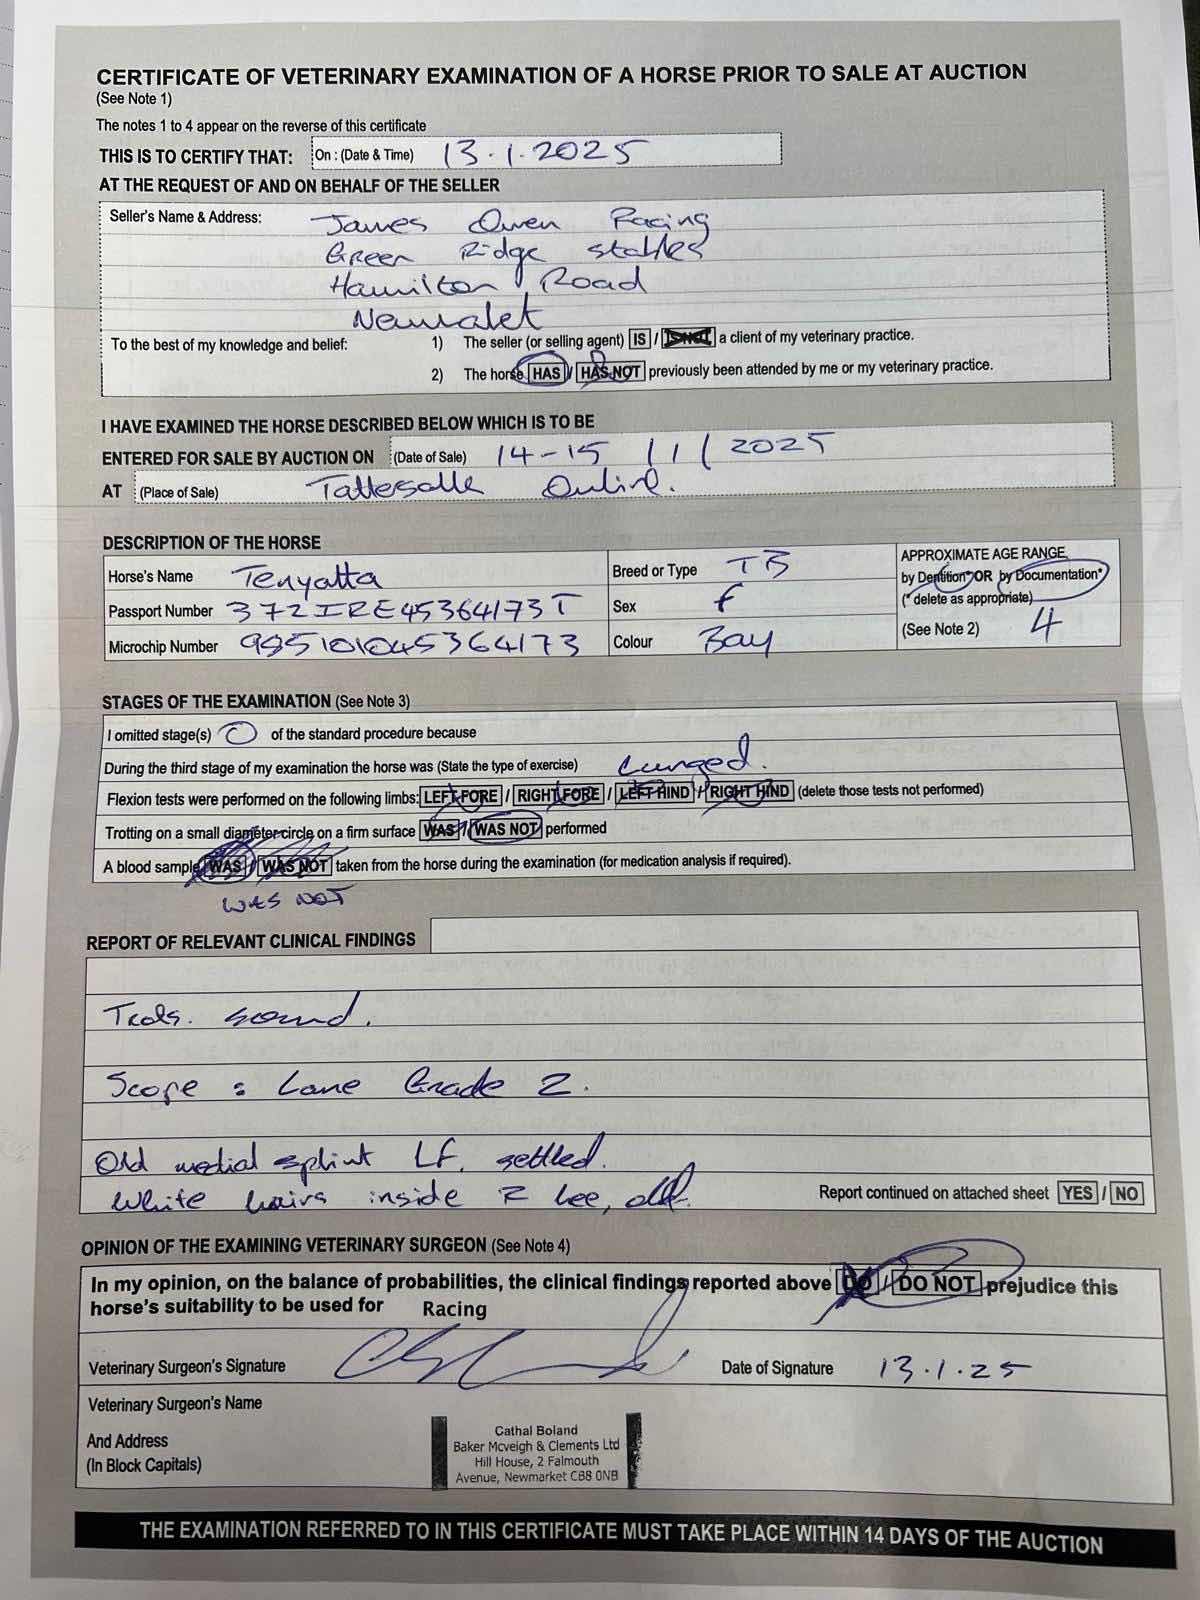 CERTIFICATE OF VETERINARY EXAMINATION OF A HORSE PRIOR TO SALE AT AUCTION
(See Note 1)
The notes 1 to 4 appear on the reverse of this certificate
THIS IS TO CERTIFY THAT: On : (Date & Time) 13.1.2025
AT THE REQUEST OF AND ON BEHALF OF THE SELLER
Seller's Name & Address: James Owen Racing
Green Ridge stables
Hamilton Road
Newmarket
To the best of my knowledge and belief: 1) The seller (or selling agent) IS / IS NOT a client of my veterinary practice.
2) The horse HAS / HAS NOT previously been attended by me or my veterinary practice.
I HAVE EXAMINED THE HORSE DESCRIBED BELOW WHICH IS TO BE
ENTERED FOR SALE BY AUCTION ON (Date of Sale) 14-15 / 1 / 2025
AT (Place of Sale) Tattersalls Online.
DESCRIPTION OF THE HORSE
Horse's Name Tenyatta Breed or Type TB APPROXIMATE AGE RANGE
by Dentition* OR by Documentation*
Passport Number 372IRE45364173T Sex f (* delete as appropriate)
Microchip Number 985101045364173 Colour Bay (See Note 2) 4
STAGES OF THE EXAMINATION (See Note 3)
I omitted stage(s) 0 of the standard procedure because
During the third stage of my examination the horse was (State the type of exercise) Lunged.
Flexion tests were performed on the following limbs: LEFT FORE / RIGHT FORE / LEFT HIND / RIGHT HIND (delete those tests not performed)
Trotting on a small diameter circle on a firm surface WAS / WAS NOT performed
A blood sample WAS / WAS NOT taken from the horse during the examination (for medication analysis if required).
WAS NOT
REPORT OF RELEVANT CLINICAL FINDINGS
Trots. sound.
Scope : Lane Grade 2.
Old medial splint LF, settled.
White hairs inside R knee, old.
Report continued on attached sheet YES / NO
OPINION OF THE EXAMINING VETERINARY SURGEON (See Note 4)
In my opinion, on the balance of probabilities, the clinical findings reported above DO / DO NOT prejudice this
horse's suitability to be used for Racing
Veterinary Surgeon's Signature Date of Signature 13.1.25
Veterinary Surgeon's Name
And Address
(In Block Capitals)
Cathal Boland
Baker Mcveigh & Clements Ltd
Hill House, 2 Falmouth
Avenue, Newmarket CB8 0NB
THE EXAMINATION REFERRED TO IN THIS CERTIFICATE MUST TAKE PLACE WITHIN 14 DAYS OF THE AUCTION